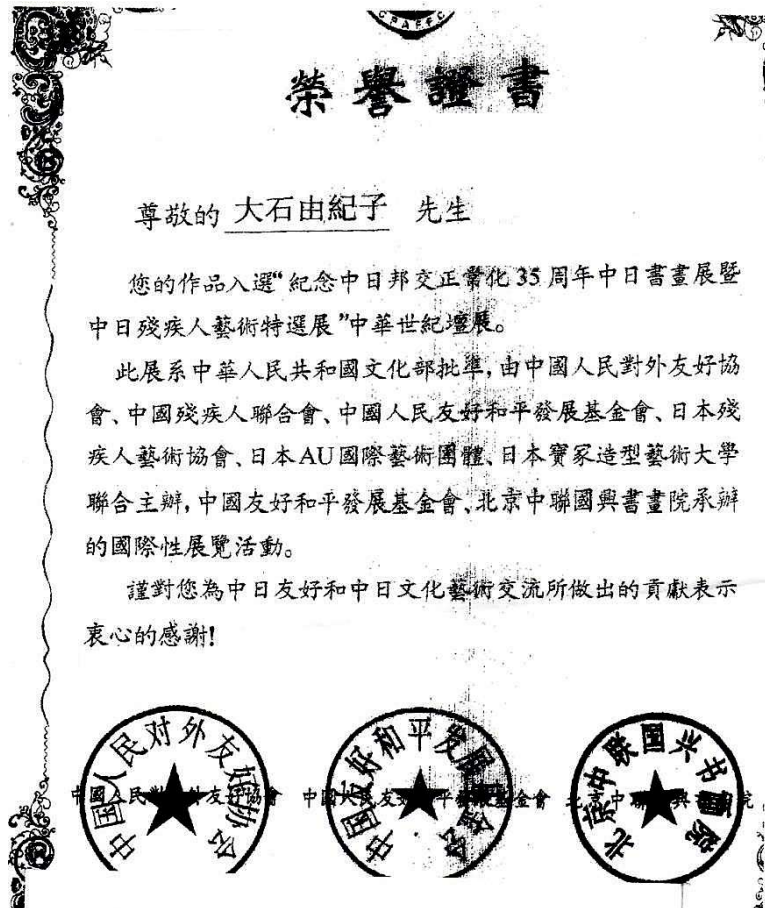 CPAFFC
榮譽證書
尊敬的 大石由紀子 先生
您的作品入選“紀念中日邦交正常化35周年中日書畫展暨
中日殘疾人藝術特選展”中華世紀壇展。
此展系中華人民共和國文化部批準,由中國人民對外友好協
會、中國殘疾人聯合會、中國人民友好和平發展基金會、日本殘
疾人藝術協會、日本AU國際藝術團體、日本寶冢造型藝術大學
聯合主辦,中國友好和平發展基金會、北京中聯國興書畫院承辦
的國際性展覽活動。
謹對您為中日友好和中日文化藝術交流所做出的貢獻表示
衷心的感謝!
中国人民对外友好协会
中国友好和平发展基金会
北京中联国兴书画院
中國人民對外友好協會 中國人民友好和平發展基金會 北京中聯國興書畫院